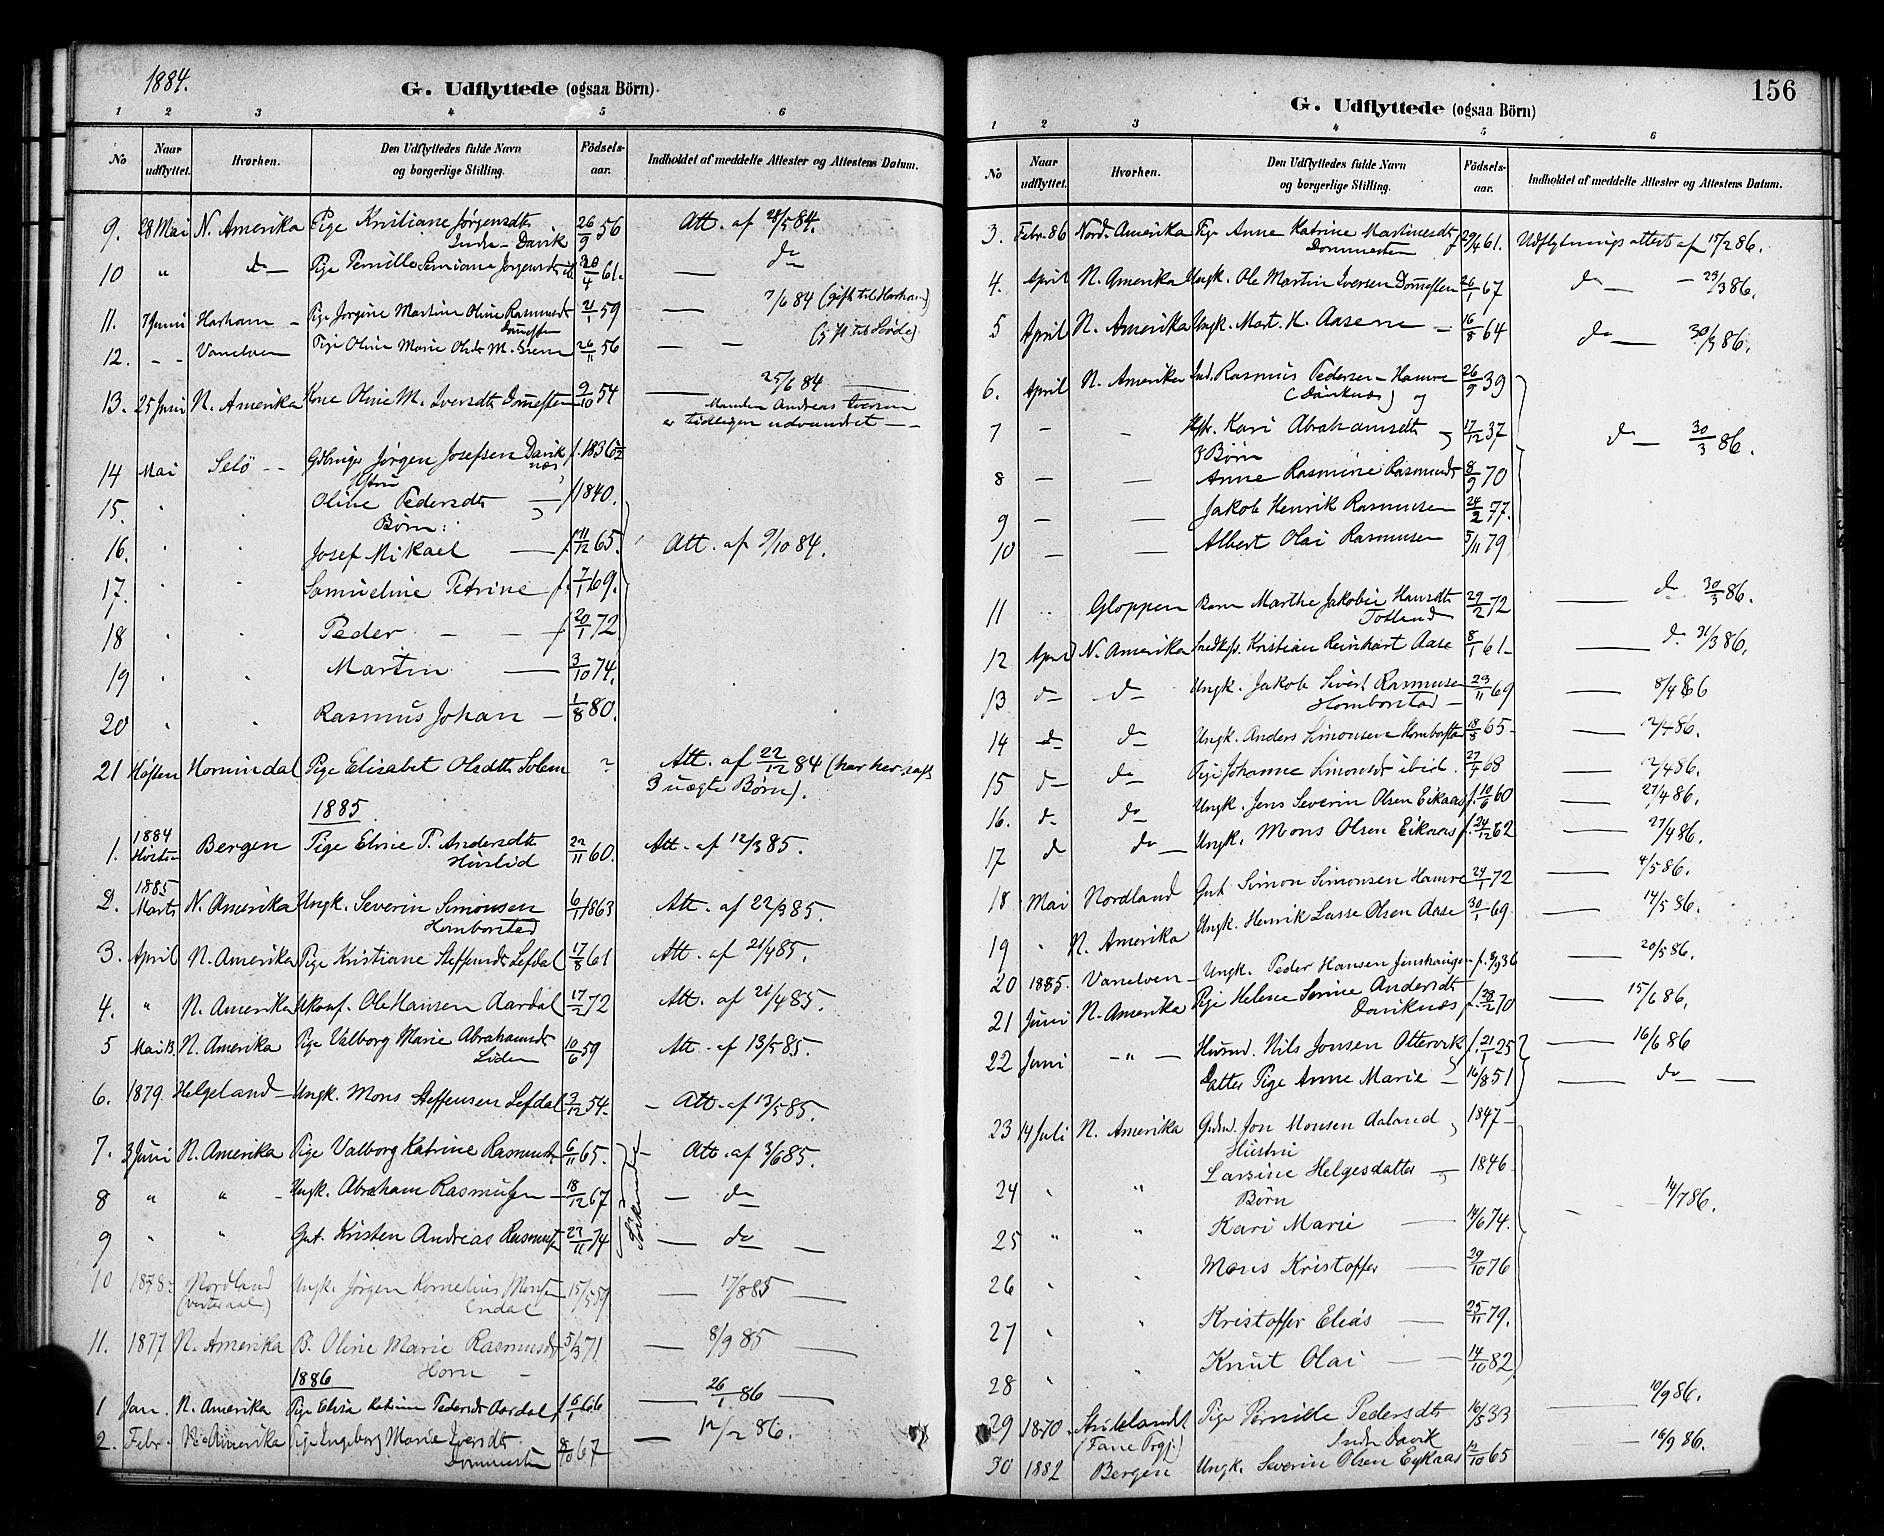 1884.
G. Udflyttede (ogsaa Börn).
1 2 3 4 5 6
No Naar udflyttet. Hvorhen. Den Udflyttedes fulde Navn og borgerlige Stilling. Födsels-aar. Indholdet af meddelte Attester og Attestens Datum.
9. 28 Mai N. Amerika Pige Kristiane Jørgensdtr 26/9 56 Att. af 28/5 84.
Indre-Davik
10 " do Pige Pernille Jørgensdtr 20/4 61. do
11. 7 Juni Harham Pige Jørgine Martine Oline Rasmusdtr 21/1 59 7/6 84 (gift til Harham)
12. - - Vanelven Pige Oline Marie Olsdtr 26/11 56
13. 25 Juni N. Amerika Kone Oline M. Iversdtr Domesten 9/10 54 25/6 84
Manden Andreas Iversen
er tidligere udvandret
14 Mai Selö Jørgen Josefsen Daviknæs f. 1836
Hustru
15. Oline Pedersdtr f 1840.
Børn:
16. Josef Mikael f. 11/12 65. Att. af 9/10 84.
17. Samueline Petrine f. 7/1 69.
18 Peder f 20/1 72
19 Martin 3/10 74.
20 Rasmus Johan 1/8 80.
21 Høsten Hornindal Pige Elisabet Olsdtr Solem ? Att. af 22/12 84 (har her haft
3 uægte Børn).
1885
1. 1884 Høsten Bergen Pige Eline P. Andersdtr 22/11 60. Att. af 12/3 85.
2. 1885 Marts N. Amerika Ungk. Severin Simonsen 6/1 1863 Att. af 22/3 85.
Hombors­tad
3. April N. Amerika Pige Kristiane Steffensdtr Lefdal 17/8 61 Att. af 21/4 85.
4. " N. Amerika Ole Hansen Aardal 17/2 72 Att. af 21/4 85.
5 Mai 13 N. Amerika Pige Valborg Marie Abrahamsdtr 10/6 59 Att. af 13/5 85.
6. 1879. Helgeland Ungk. Mons Steffensen Lefdal 3/12 54. Att. af 13/5 85.
7. 3 Juni N. Amerika Pige Valborg Katrine Rasmusdtr 6/11 65. Att. af 3/6 85.
8 " " Ungk. Abraham Rasmussen 18/12 67 do
9 " " Gut. Kristen Andreas Rasmussen 22/11 74 do
10 1878. Nordland Ungk. Jørgen Kornelius 15/5 59 17/8 85
(Vesteraalen) Endal
11. 1877 N. Amerika B. Oline Marie Rasmusdtr 5/3 71 8/9 85
Horn
1886
1 Jan. N. Amerika Pige Elisa Katrine Pedersdtr Aardal f 6/1 66 26/1 86
2. Febr. N. Amerika Pige Ingeborg Marie Iversdtr 8/10 67 12/2 86.
Dommesten
156
G. Udflyttede (ogsaa Börn)
1 2 3 4 5 6
No Naar udflyttet. Hvorhen. Den Udflyttedes fulde Navn og borgerlige Stilling. Födsels-aar. Indholdet af meddelte Attester og Attestens Datum.
3. Febr. 86 Nord. Amerika Pige Anne Katrine Martinusdtr f 29/4 61. Udflytningsattest af 17/2 86.
Dommesten
4. April N. Amerika Ungk. Ole Martin Iversen Domesten 26/1 67 do 23/3 86.
5 April N. Amerika Ungk. Mart. H. Aasene 16/8 64 do 30/3 86.
6. April N. Amerika Ind. Rasmus Pedersen Hamre 26/9 39
(Daviknæs) og
7 - - Hstr. Kari Abrahamsdtr 17/12 37 do 30/3 86.
3 Børn
8 - - Anne Rasmine Rasmusdtr 8/9 70
9 - - Jakob Henrik Rasmusen 24/2 77.
10 - - Albert Olai Rasmusen 5/11 79
11 Gloppen Barn Marthe Jakobie Hansdtr 29/2 72 do 30/3 86.
Totland
12 April N. Amerika Kristian Reinhart Aase 8/1 61 do 31/3 86.
13 do do Ungk. Jakob Sivert Rasmusen 23/11 69 8/4 86
Homborstad
14 do do Ungk. Anders Simonsen 18/3 65 12/4 86.
15 do do Pige Johanne Simonsdtr ibid. 27/4 68 12/4 86.
16. do do Ungk. Jens Severin Olsen Eikaas f. 10/6 60 27/4 86.
17 do do Ungk. Mons Olsen Eikaas f. 24/12 62 27/4 86.
18 Mai Nordland Gut Simon Simonsen Hamre 24/1 72 4/5 86.
19 N. Amerika Ungk. Henrik Lasse Olsen Aase 30/1 69. 14/5 86.
20 1885. Vanelven Ungk. Peder Hansen f. 8/9 36 20/5 86.
21 Juni N. Amerika Pige Helene Serine Andersdtr f. 28/2 70 15/6 86.
Daviknæs
22 Juni - " - Husmd. Nils Jonsen Ottervik f. 21/1 25 16/6 86
Datter Pige Anne Marie 16/8 51 do
23 14 Juli N. Amerika Grdmd. Jon Monsen Aaland 1847
Hustru
24 " Larsine Helgesdatter 1846
Børn 14/7 86.
25 " " Kari Marie 14/6 74.
26 Mons Kristoffer 29/10 76
27 Kristoffer Elias 25/11 79.
28 Knut Olai 14/10 82
29 1870. Strilelandet Pige Pernille Pedersdtr 16/5 33 10/9 86.
(Fane Prgj.) Indre Davik
30 1882 Bergen Ungk. Severin Olsen Eykaas 12/10 65 16/9 86.